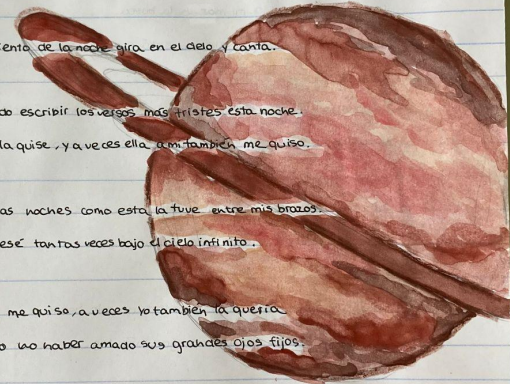 de la noche gira en el cielo y canta.
escribir los versos más tristes esta noche.
la quise, y a veces ella a mi también me quiso.
noches como esta la tuve entre mis brazos.
tantas veces bajo el cielo infinito.
me quiso, a veces yo también la quería
no haber amado sus grandes ojos fijos.